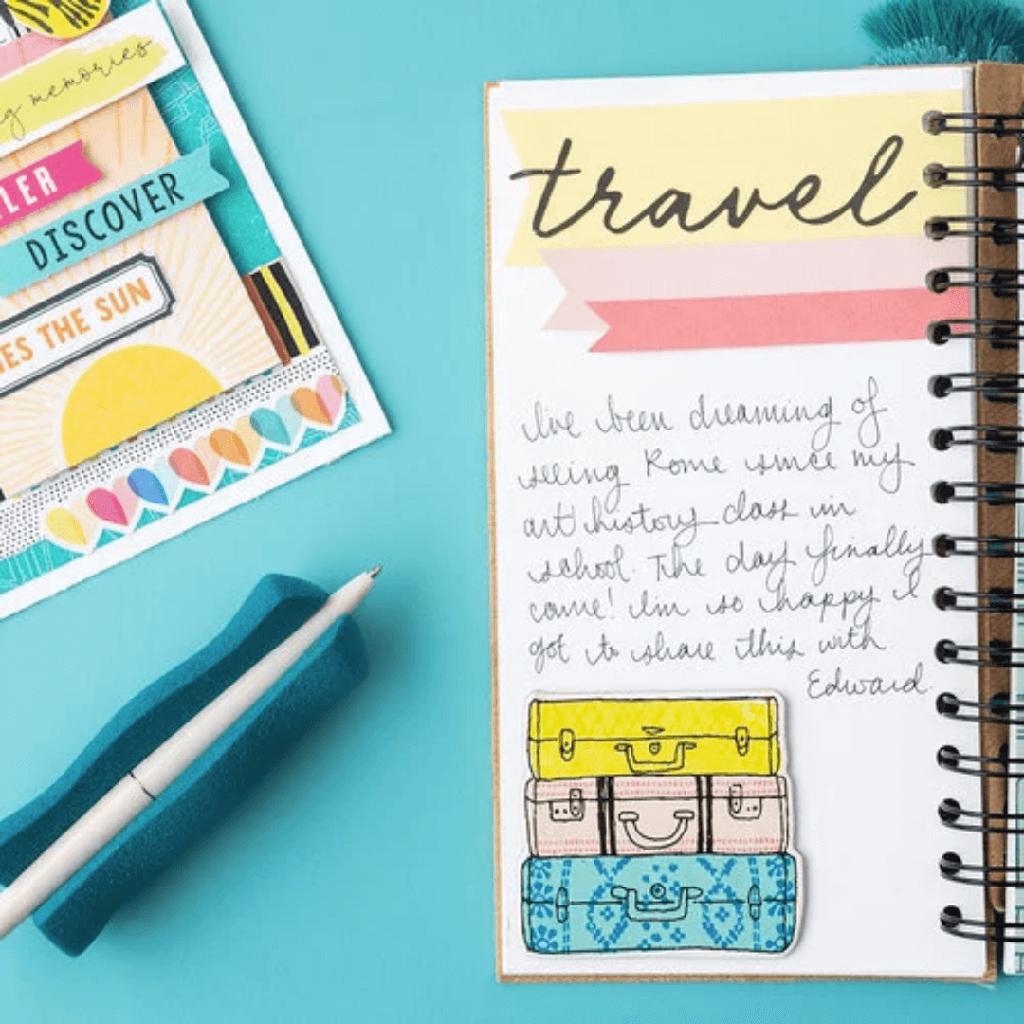 memories
LER
DISCOVER
ES THE SUN
travel
I've been dreaming of
seeing Rome since my
art history class in
school. The day finally
came! I'm so happy I
got to share this with
Edward.